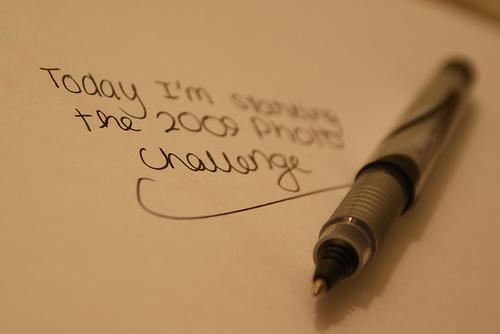 Today I'm starting
the 2009 photo
challenge